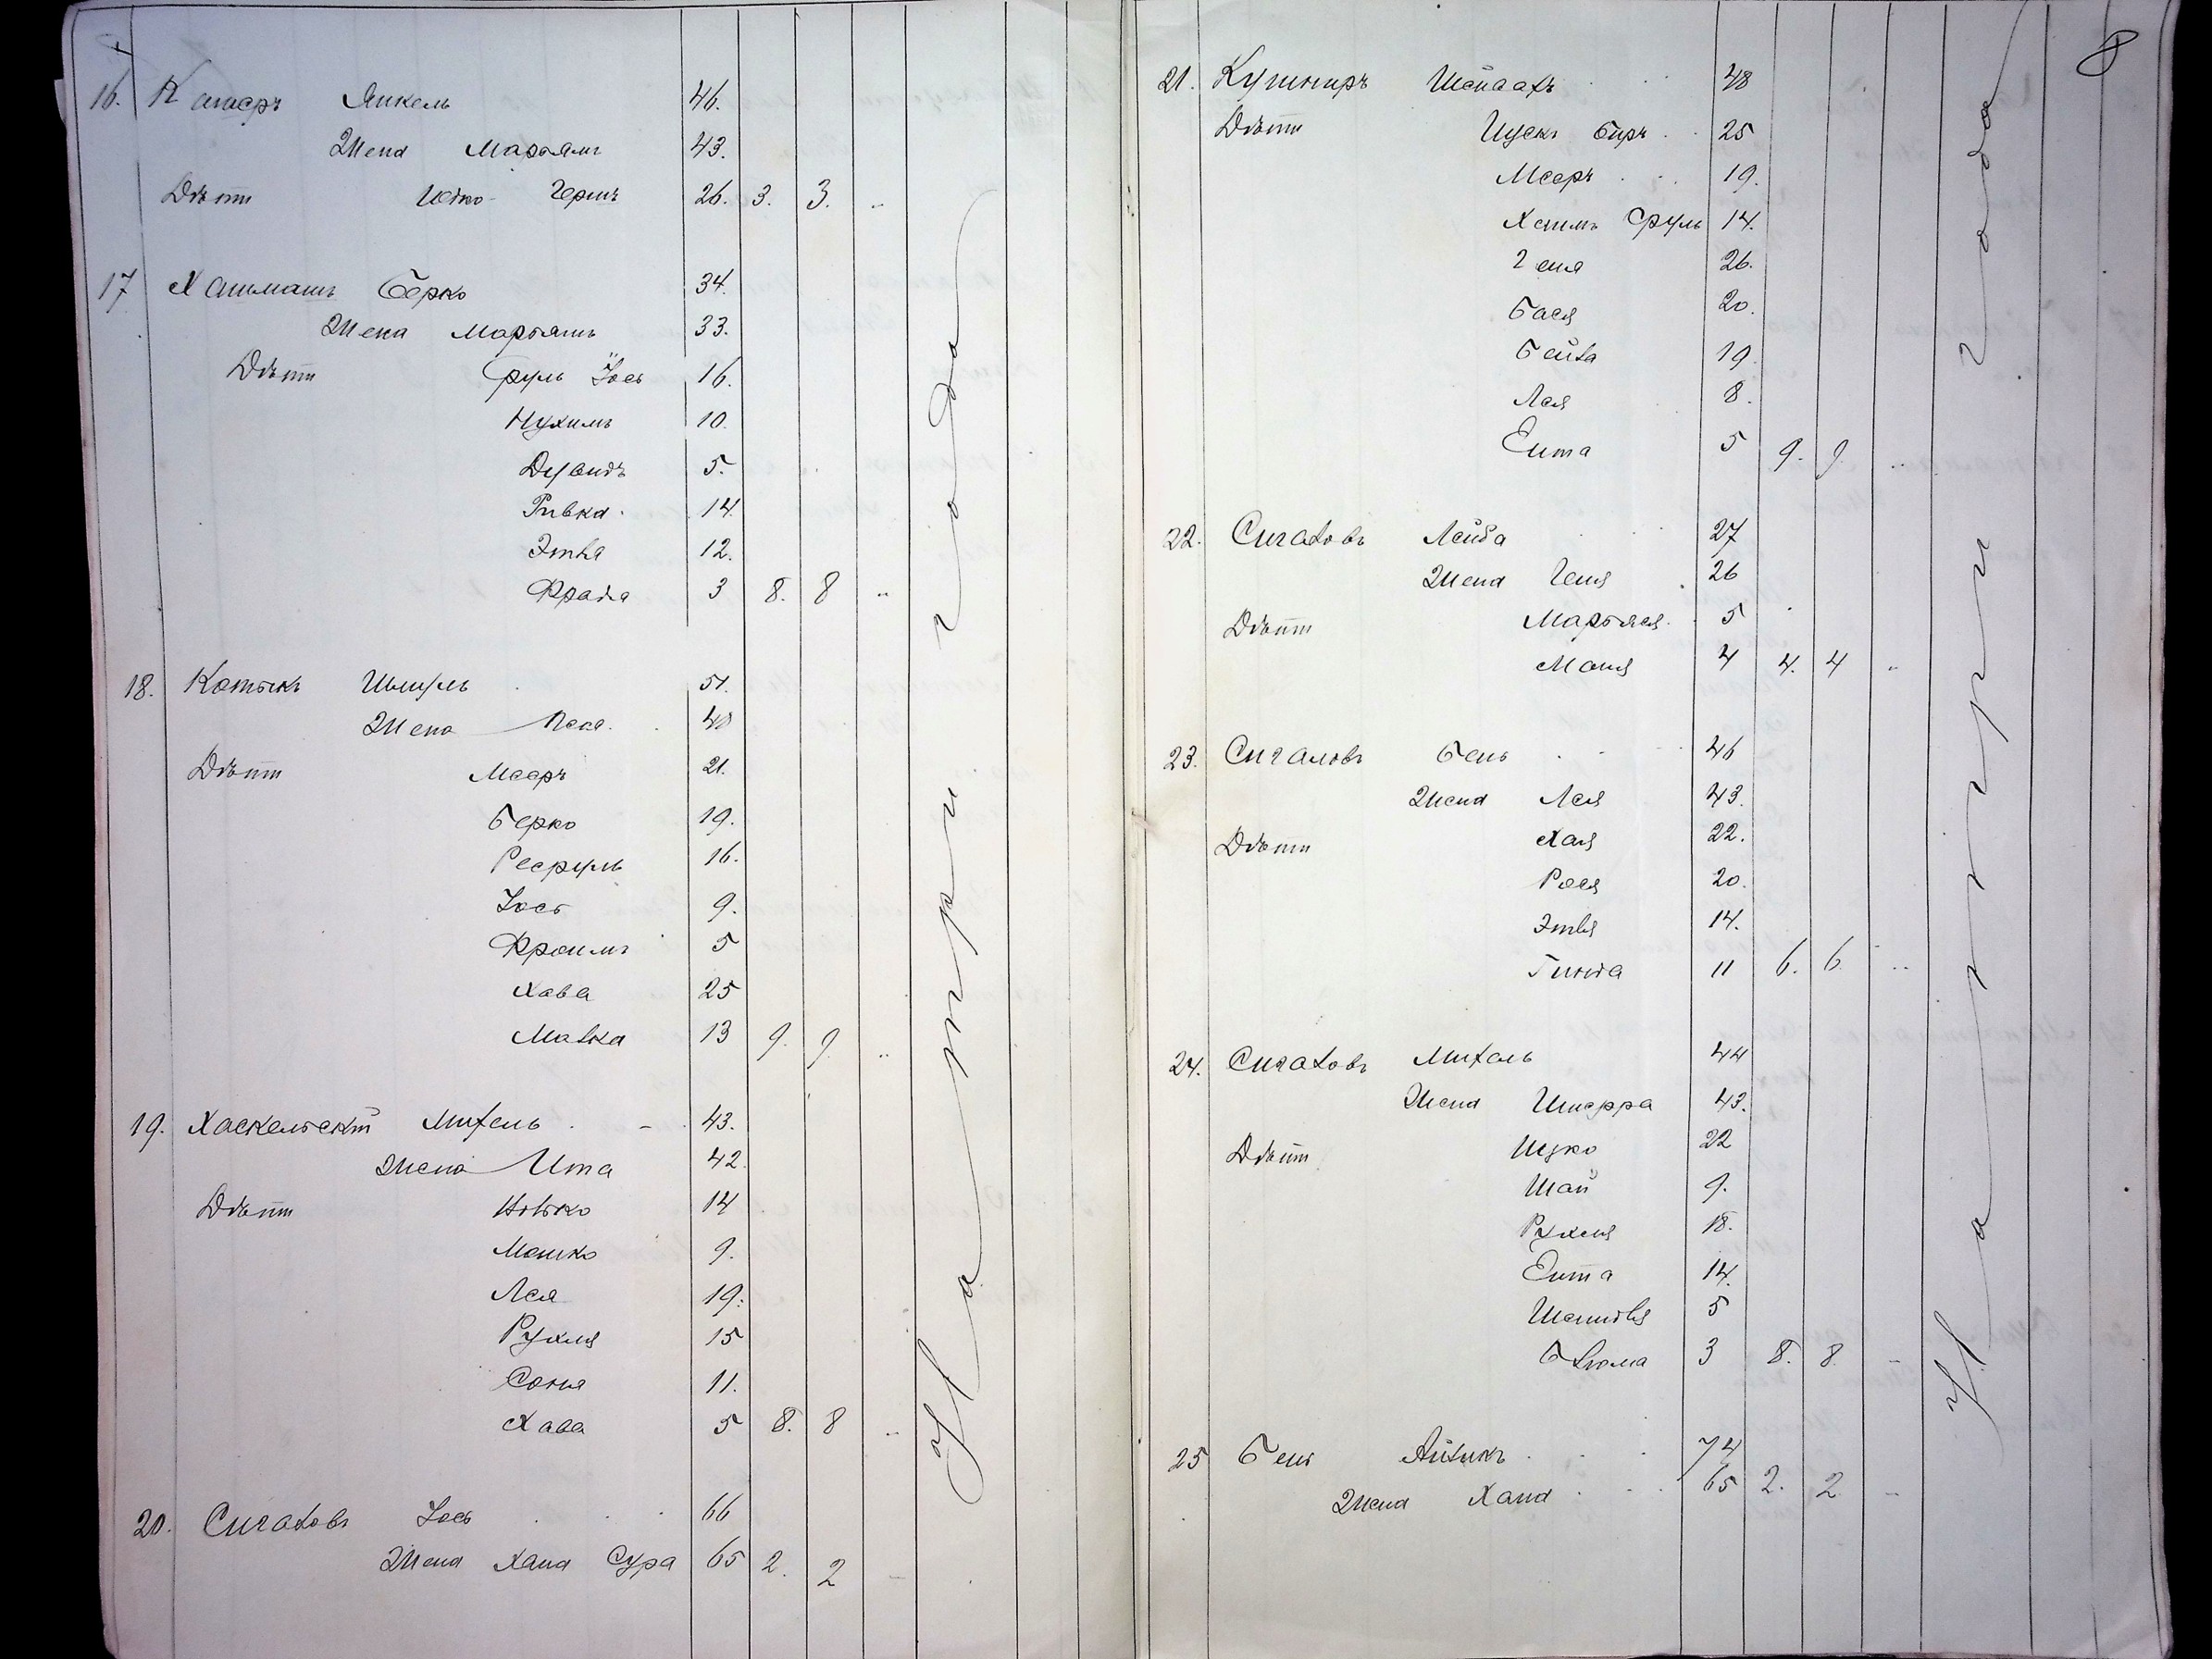 16. Катеръ Янкель 46.
Жена Марьямъ 43.
Дѣти Ицко Гершъ 26. 3. 3. "
17 Хашманъ Берко 34.
Жена Марьямъ 33.
Дѣти Сруль Іось 16.
Нухимъ 10.
Дувидъ 5.
Ривка 14.
Этля 12.
Фрада 3 8. 8 "
18. Котыкъ Шмуль 51.
Жена Песя 48
Дѣти Мееръ 21.
Берко 19.
Іось 9.
Фроимъ 5
Хава 25
Малка 13 9. 9. "
19. Хаскельскій Михель 43.
Жена Ита 42.
Дѣти 14
Мошко 9.
Лея 19.
Рухля 15
Соня 11.
Хава 5 8. 8 "
20. Сигаловъ Іось 66
Жена Хана Сура 65 2. 2 "
На три года
8
21. Кушниръ 48
Дѣти Ицекъ Беръ 25
Мееръ 19.
Хаимъ Сруль 14.
Геня 26.
Бася 20.
Бейла 19.
Лея 8.
Ента 5 9. 9. "
22. Сигаловъ Лейба 27
Жена Геня 26
Дѣти Марьяся 5
Маня 4 4. 4 "
23. Сигаловъ Бень 46
Жена Лея 43.
Дѣти Хая 22.
Рося 20.
Этля 14.
Гинда 11 6. 6. "
24. Сигаловъ Михель 44
Жена Шперра 43.
Дѣти Ицко 22
Шай 9.
Рухля 18.
Ента 14.
Шейндля 5
Блюма 3 8. 8. "
25 Бень Айзикъ 74
Жена Хана 65 2. 2 "
На три года